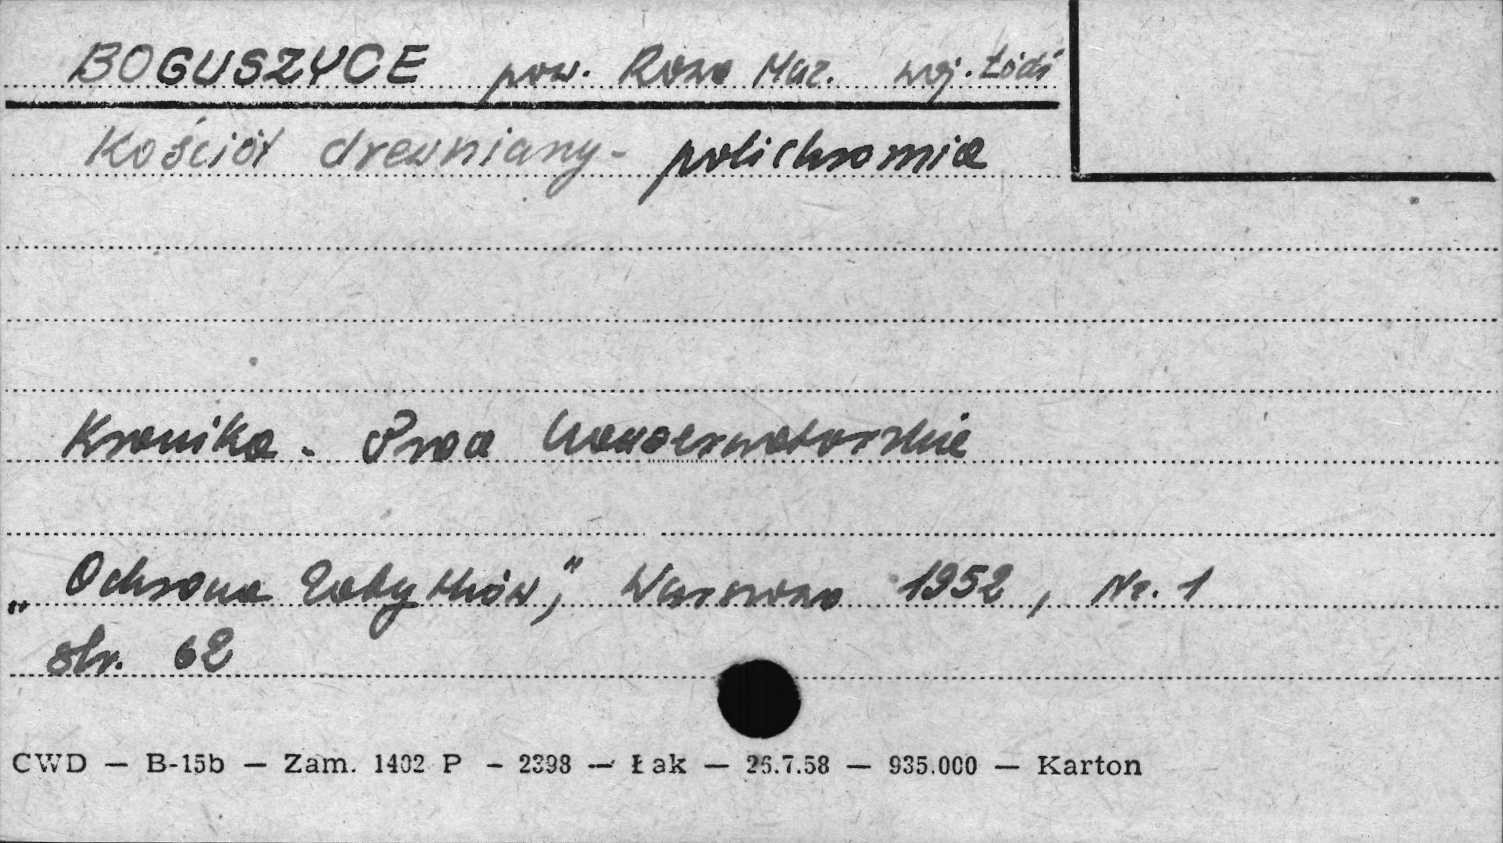 BOGUSZYCE pow. Rawa Maz. woj. Łódź
Kościół drewniany - polichromia
Kronika - Prace konserwatorskie
„Ochrona Zabytków”, Warszawa 1952, Nr. 1
str. 62
CWD — B-15b — Zam. 1402 P - 2398 — Łak — 26.7.58 — 935.000 — Karton